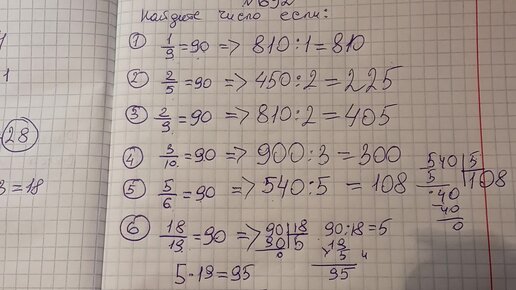 №692
Найдите число если:
① 1/9 = 90 => 810 : 1 = 810
② 2/5 = 90 => 450 : 2 = 225
③ 2/9 = 90 => 810 : 2 = 405
④ 3/10 = 90 => 900 : 3 = 300
⑤ 5/6 = 90 => 540 : 5 = 108
540 | 5
5 | 108
40
40
0
⑥ 18/19 = 90 => 90 | 18
90 | 5
0
90 : 18 = 5
19
× 5
95
5 · 19 = 95
28
= 18
1